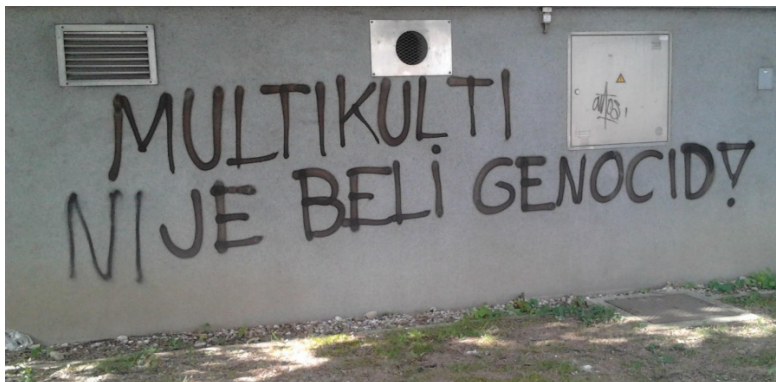 MULTIKULTI
NIJE BELI GENOCID!